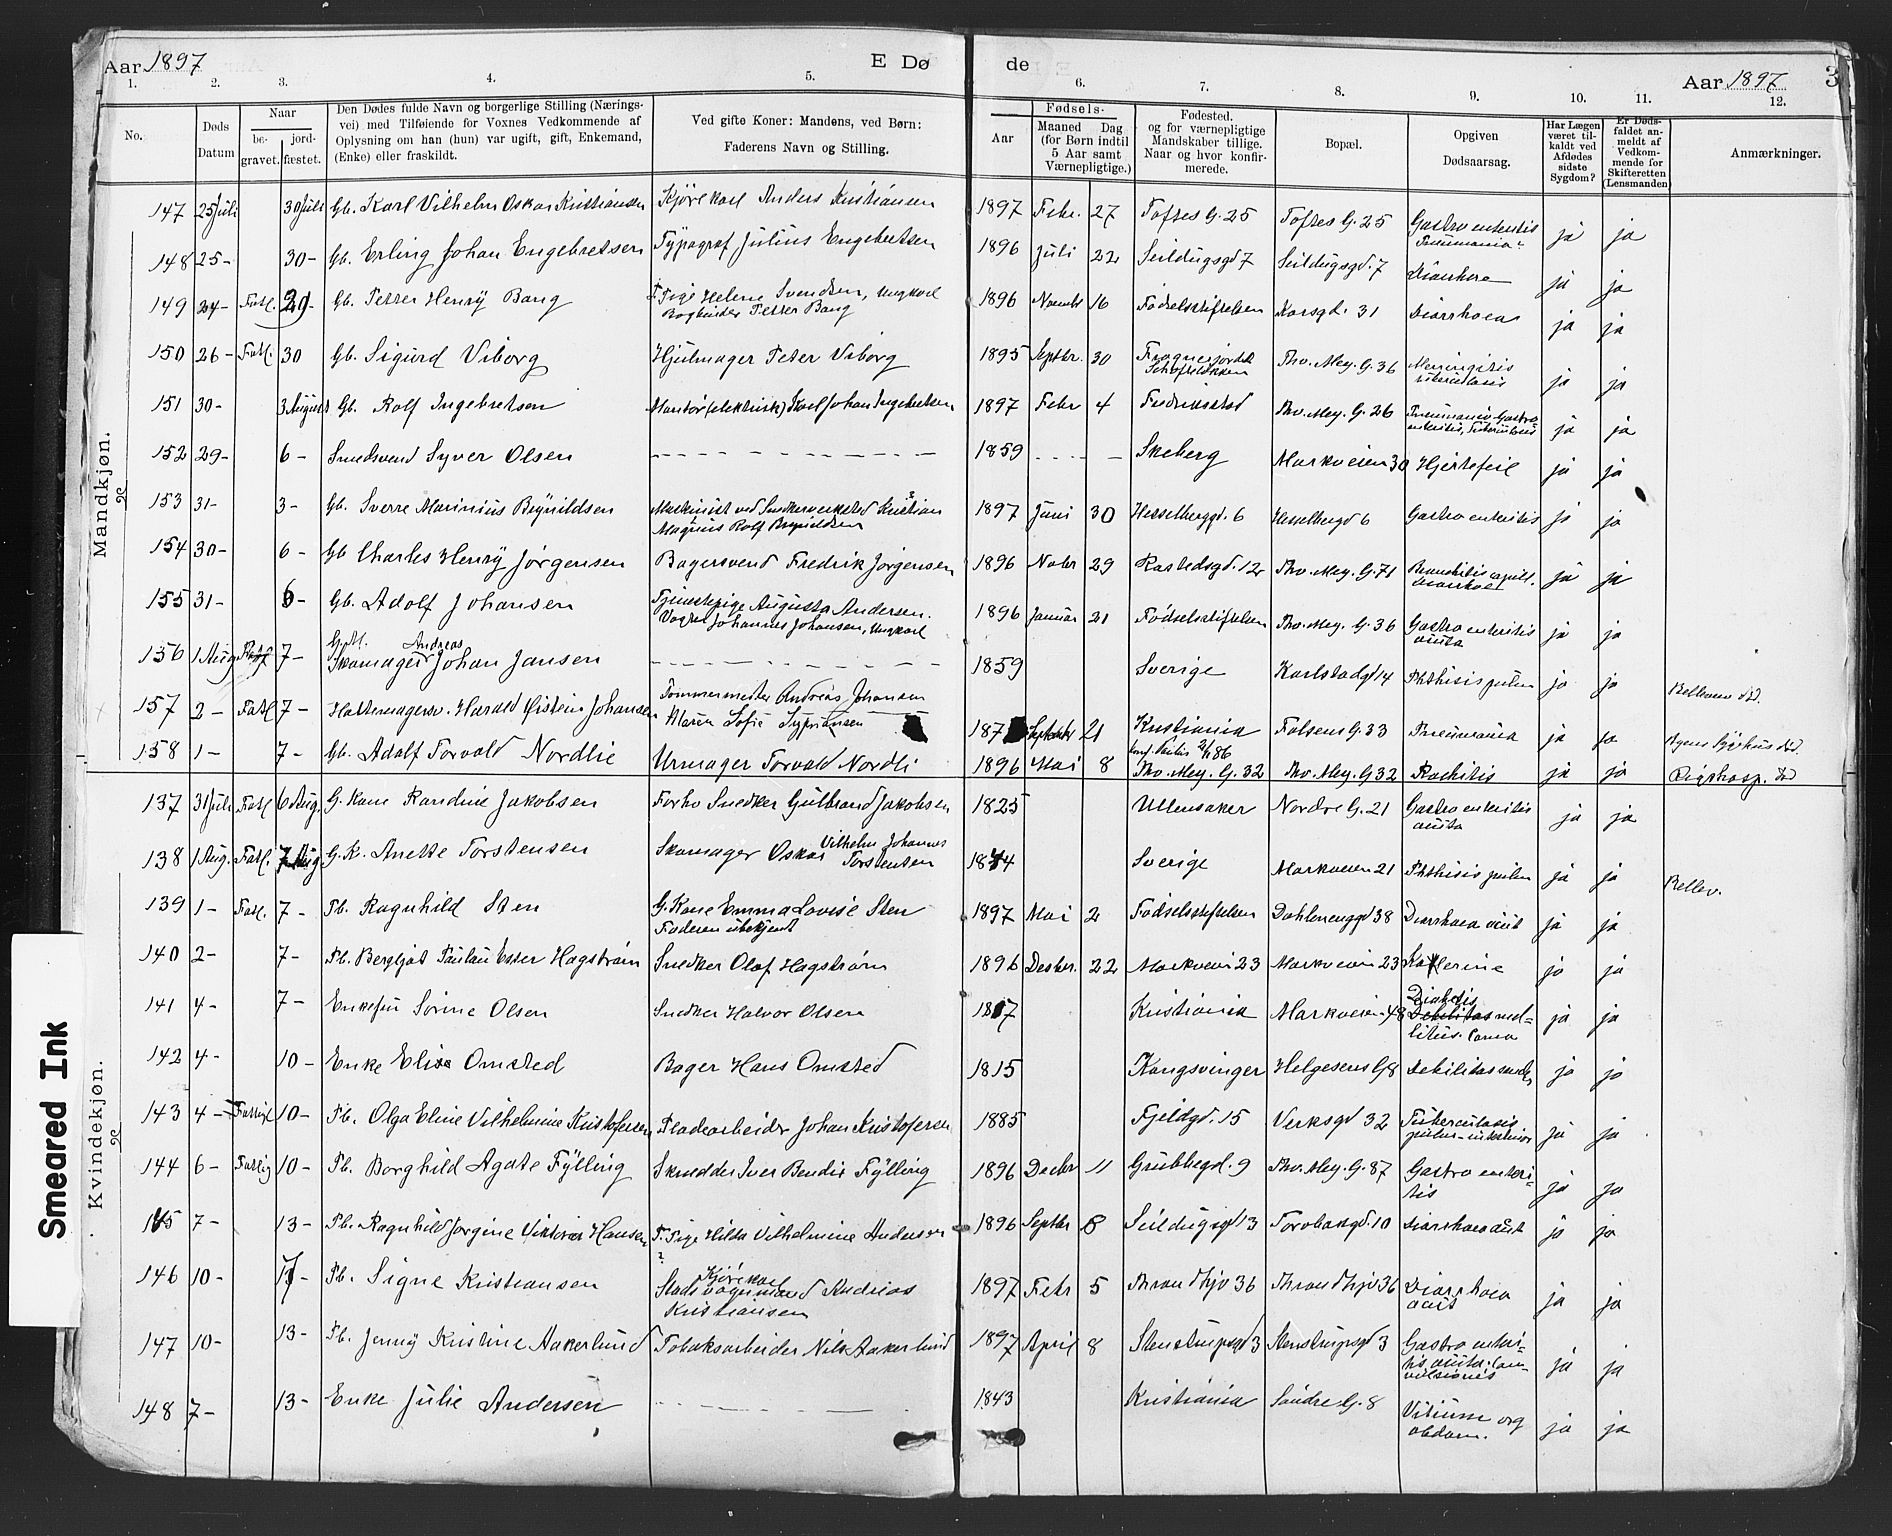 Aar 1897 E Døde Aar 1897 3
1. 2. 3. 4. 5. 6. 7. 8. 9. 10. 11. 12.
No.
Døds Datum
Naar
be- gravet.
jord- fæstet.
Den Dødes fulde Navn og borgerlige Stilling (Nærings-
vei) med Tilføiende for Voxnes Vedkommende af
Oplysning om han (hun) var ugift, gift, Enkemand,
(Enke) eller fraskildt.
Ved gifte Koner: Mandens, ved Børn:
Faderens Navn og Stilling.
Fødsels-
Aar
Maaned Dag
(for Børn indtil
5 Aar samt
Værnepligtige.)
Fødested.
og for værnepligtige
Mandskaber tillige.
Naar og hvor konfir-
merede.
Bopæl.
Opgiven
Dødsaarsag.
Har Lægen
været til-
kaldt ved
Afdødes
sidste
Sygdom?
Er Døds-
faldet an-
meldt af
Vedkom-
mende for
Skifteretten
(Lensmanden)
Anmærkninger.
Mandkjøn.
147 25 Juli 30 Juli Gb. Karl Vilhelm Oskar Kristiansen Kjørekarl Anders Kristiansen 1897 Febr. 27 Toftes G. 25 Toftes G. 25 Gastro enteritis Pneumonia ja ja
148 25 - 30 - Gb. Erling Johan Engebretsen Typograf Julius Engebretsen 1896 Juli 22 Seildugsgd 7 Seildugsgd. 7 Diarrhoea ja ja
149 24 - Fatl. 29 - Gb. Petter Henry Bang F. Pige Helene Svendsen, Ungkarl Bogbinder Petter Bang 1896 Novembr 16 Fødselsstiftelsen Korsgd. 31 Diarrhoea ja ja
150 26 - Fatl. 30 Gb. Sigurd Viborg Hjulmager Peter Viborg 1895 Septbr. 30 Thv. Mey. G. 36 Meningitis tuberculosis ja ja
151 30 - 3 August Gb. Rolf Ingebretsen Montør (elektrisk) Karl Johan Ingebretsen 1897 Febr 4 Fredrikstad Thv. Mey. G. 26 Pneumonia Gastro enteritis, Tuberculosis ja ja
152 29 - 6 - Smedsvend Syver Olsen - - - 1859 - - - Skeberg Markveien 30 Hjertefeil ja ja
153 31 - 3 - Gb. Sverre Marinius Brynildsen Maskinist ved Snedkerværksted Kristian Magnus Rolf Brynildsen 1897 Juni 30 Hesselberggd. 6 Hesselbergd 6 Gastro enteritis ja ja
154 30 - 6 - Gb Charles Henry Jørgensen Bagersvend Fredrik Jørgensen 1896 Nobr 29 Rastedsgd. 12 Thv. Mey. G. 71 Bronchitis capill. Diarrhoea ja ja
155 31 - 6 - Gb. Adolf Johansen Tjenestepige Augusta Andersen. Johannes Johansen, Ungkarl 1896 Januar 21 Fødselsstiftelsen Thv. Mey. G. 36 Gastro enteritis acuta ja ja
156 1 Aug 7 - G.M. Skomager Johan Andreas Jansen - - - 1859 Sverige Karlstadgd 14 Phthisis pulm ja ja Bellevue død.
157 2 - Fatl 7 - Hattemagersv. Harald Øistein Johansen Tømmermester Andreas Johansen Maren Sofie Sypriansen 187 Septembr 21 Kristiania konf. Paulus 86 Falsens G. 33 Pneumonia ja ja Byens Sygehus død.
158 1 - 7 - Gb. Adolf Torvald Nordlie Urmager Torvald Nordli 1896 Mai 8 Thv. Mey. G. 32 Thv. Mey. G 32 Rachitis ja ja Rigshosp. død
Kvindekjøn.
137 31 Juli Fatl 6 Aug. G. Kone Randine Jakobsen Forhv Snedker Gulbrand Jakobsen 1825 Ullensaker Nordre G. 21 Gastro enteritis acuta ja ja
138 1 Aug. Fatl. 7 Aug G. K. Anette Torstensen Skomager Oskar Vilhelm Johannes Torstensen 1844 Sverige Markveien 21 Phthisis pulm ja ja Bellev.
139 1 - Fatl. 7 - Pb. Ragnhild Sten G. Kone Emma Lovise Sten Faderen ubekjent 1897 Mai 2 Fødselsstiftelsen Dahlenenggd 38 Diarrhoea acut ja ja
140 2 - 7 - Pb. Bergljot Paulau Ester Hagstrøm Snedker Olaf Hagstrøm 1896 Desbr. 22 Markveien 23 Markveien 23 ja ja
141 4 - 7 - Enkefru Sørine Olsen Snedker Halvor Olsen 1817 Kristiania Markveien 48 Diabetis mel- litus. Coma ja ja
142 4 - 10 - Enke Elise Omsted Bager Hans Omsted 1815 Kongsvinger Helgesens G 8 Debilitas senilis ja ja
143 4 - Fattigl 10 - Pb. Olga Eline Vilhelmine Kristofersen Pladearbeider Johan Kristofersen 1885 Fjeldgd. 15 Verksgd 32 Tuberculosis ja ja
144 6 - Fattig 10 - Pb. Borghild Agate Fylling Skrædder Iver Bendix Fylling 1896 Decbr 11 Grubbegd. 9 Thv. Mey. G. 87 Gastro enteri- tis ja ja
145 7 - 13 - Pb. Ragnhild Jørgine Viktoria Hansen F. Pige Hilda Vilhelmine Andersen 1896 Septbr 8 Seildugsgd 13 Torvbakgd. 10 Diarrhoea acut ja ja
146 10 - 17 - Pb. Signe Kristiansen Kjørekarl Andreas Kristiansen 1897 Febr 5 Thrond hjv 36 Thrond hjv 36 Diarrhoea acut ja ja
147 10 - 13 - Pb. Jenny Kristine Aakerlund Tobaksarbeider Nils Aakerlund 1897 April 8 Stenstrupsgd 3 Stenstrupsgd 3 Gastro enteri- tis acuta. Con- vulsiones ja ja
148 7 - 13 - Enke Julie Andersen - - - 1843 Kristiania Søndre G. 8 Vitium org abdom. ja ja
Smeared Ink